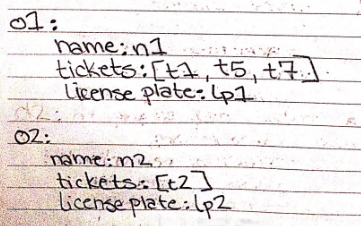 o1:
name: n1
tickets: [t1, t5, t7]
License plate: lp1
o2:
name: n2
tickets: [t2]
license plate: lp2